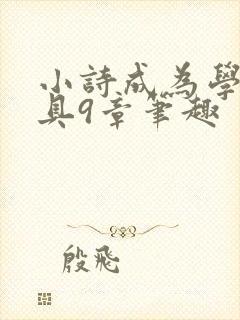 小詩成為學
具9章筆趣
殷飛